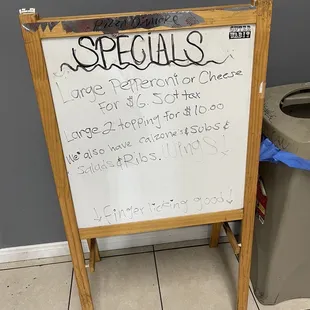 SPECIALS
Large Pepperoni or Cheese
for $6.50+ tax
Large 2 topping for $10.00
We also have calzones & Subs &
Salads & Ribs. Wings!
↓ finger licking good ↓